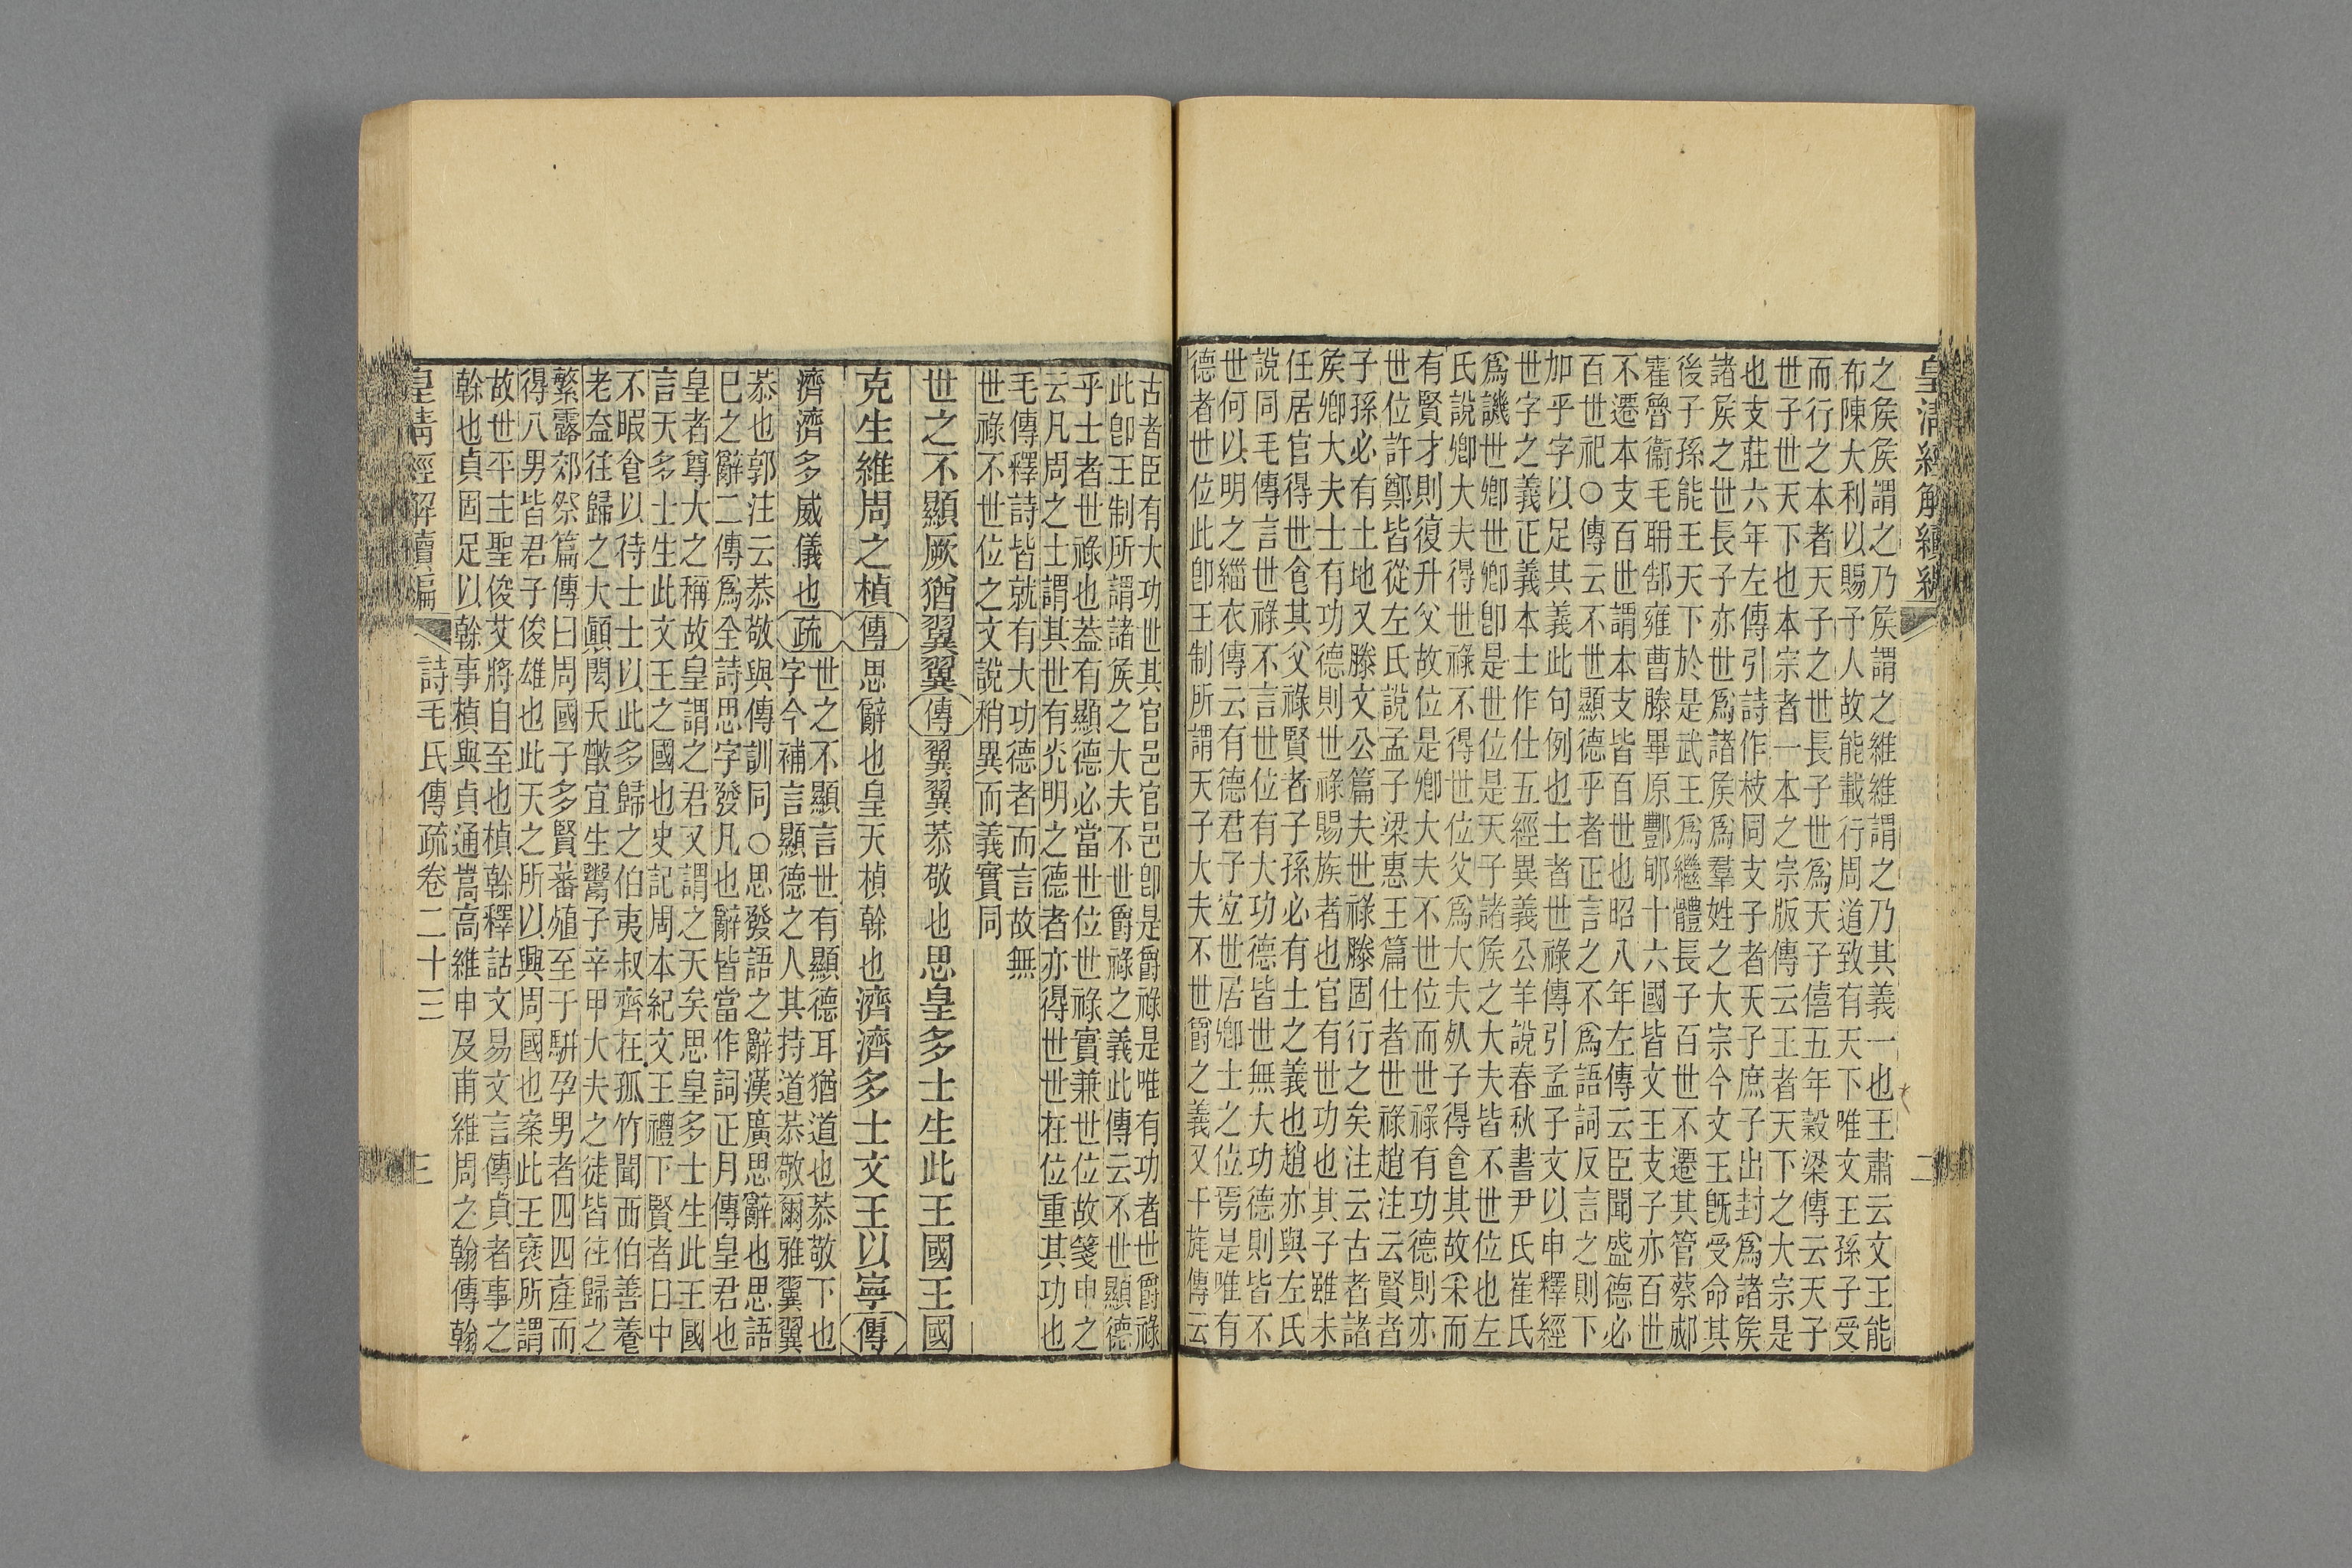 皇清經解續編
二
之矦矦謂之乃矦謂之維維謂之乃其義一也王肅云文王能
布陳大利以賜子人故能載行周道致有天下唯文王孫子受
而行之本者天子之世長子世爲天子僖五年穀梁傳云天子
世子世天下也本宗者一本之宗版傳云王者天下之大宗是
也支莊六年左傳引詩作枝同支子者天子庶子出封爲諸矦
諸矦之世長子亦世爲諸矦爲羣姓之大宗今文王旣受命其
後子孫能王天下於是武王爲繼體長子百世不遷其管蔡郕
霍魯衞毛聃郜雍曹滕畢原酆郇十六國皆文王支子亦百世
不遷本支百世謂本支皆百世也昭八年左傳云臣聞盛德必
百世祀○傳云不世顯德乎者正言之不爲語詞反言之則下
加乎字以足其義此句例也士者世祿傳引孟子文以申釋經
世字之義正義本士作仕五經異義公羊說春秋書尹氏崔氏
爲譏世卿世卿卽是世位是天子諸矦之大夫皆不世位也左
氏說卿大夫得世祿不得世位父爲大夫死子得食其故采而
有賢才則復升父故位是卿大夫不世位而世祿有功德則亦
世位許鄭皆從左氏說孟子梁惠王篇仕者世祿趙注云賢者
子孫必有土地又滕文公篇夫世祿滕固行之矣注云古者諸
矦卿大夫士有功德則世祿賜族者也官有世功也其子雖未
任居官得世食其父祿賢者子孫必有土之義也趙亦與左氏
說同毛傳言世祿不言世位有大功德皆世無大功德則皆不
世何以明之緇衣傳云有德君子宐世居卿士之位焉是唯有
德者世位此卽王制所謂天子大夫不世爵之義又干旄傳云
古者臣有大功世其官邑官邑卽是爵祿是唯有功者世爵祿
此卽王制所謂諸矦之大夫不世爵祿之義此傳云不世顯德
乎士者世祿也葢有顯德必當世位世祿實兼世位故箋申之
云凡周之士謂其世有光明之德者亦得世世在位重其功也
毛傳釋詩皆就有大功德者而言故無
世祿不世位之文說稍異而義實同
世之不顯厥猶翼翼傳翼翼恭敬也思皇多士生此王國王國
克生維周之楨傳思辭也皇天楨榦也濟濟多士文王以寧傳
濟濟多威儀也疏世之不顯言世有顯德耳猶道也恭敬下也
字今補言顯德之人其持道恭敬爾雅翼翼
恭也郭注云恭敬與傳訓同○思發語之辭漢廣思辭也思語
已之辭二傳爲全詩思字發凡也辭皆當作詞正月傳皇君也
皇者尊大之稱故皇謂之君又謂之天矣思皇多士生此王國
言天多士生此文王之國也史記周本紀文王禮下賢者日中
不暇食以待士士以此多歸之伯夷叔齊在孤竹聞西伯善養
老盍往歸之大顚閎夭㪚宜生鬻子辛甲大夫之徒皆往歸之
繁露郊祭篇傳曰周國子多賢蕃殖至于騈孕男者四四產而
得八男皆君子俊雄也此天之所以興周國也案此王襃所謂
故世平主聖俊艾將自至也楨榦釋詁文易文言傳貞者事之
榦也貞固足以榦事楨與貞通嵩高維申及甫維周之翰傳翰
皇清經解續編
詩毛氏傳疏卷二十三
三